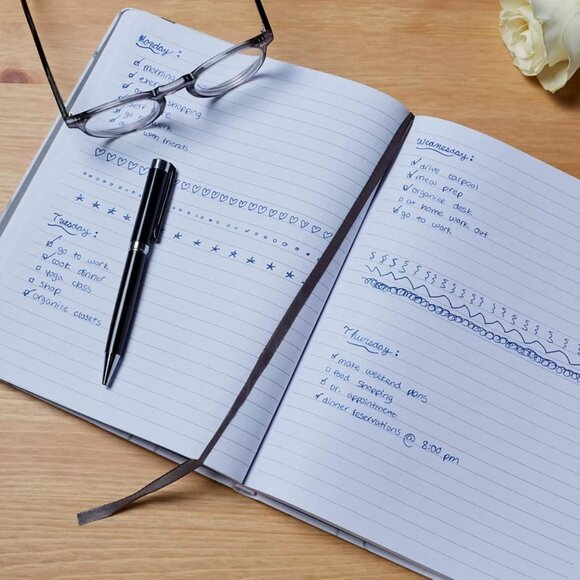 Monday:
morning
exer
shopping
self
go to work
with friends
Tuesday:
go to work
cook dinner
yoga class
shop
organise closets
Wednesday:
drive carpool
meal prep
organise desk
at home work out
go to work
Thursday:
make weekend plans
food shopping
Dr. appointment
dinner reservations @ 8:00 pm